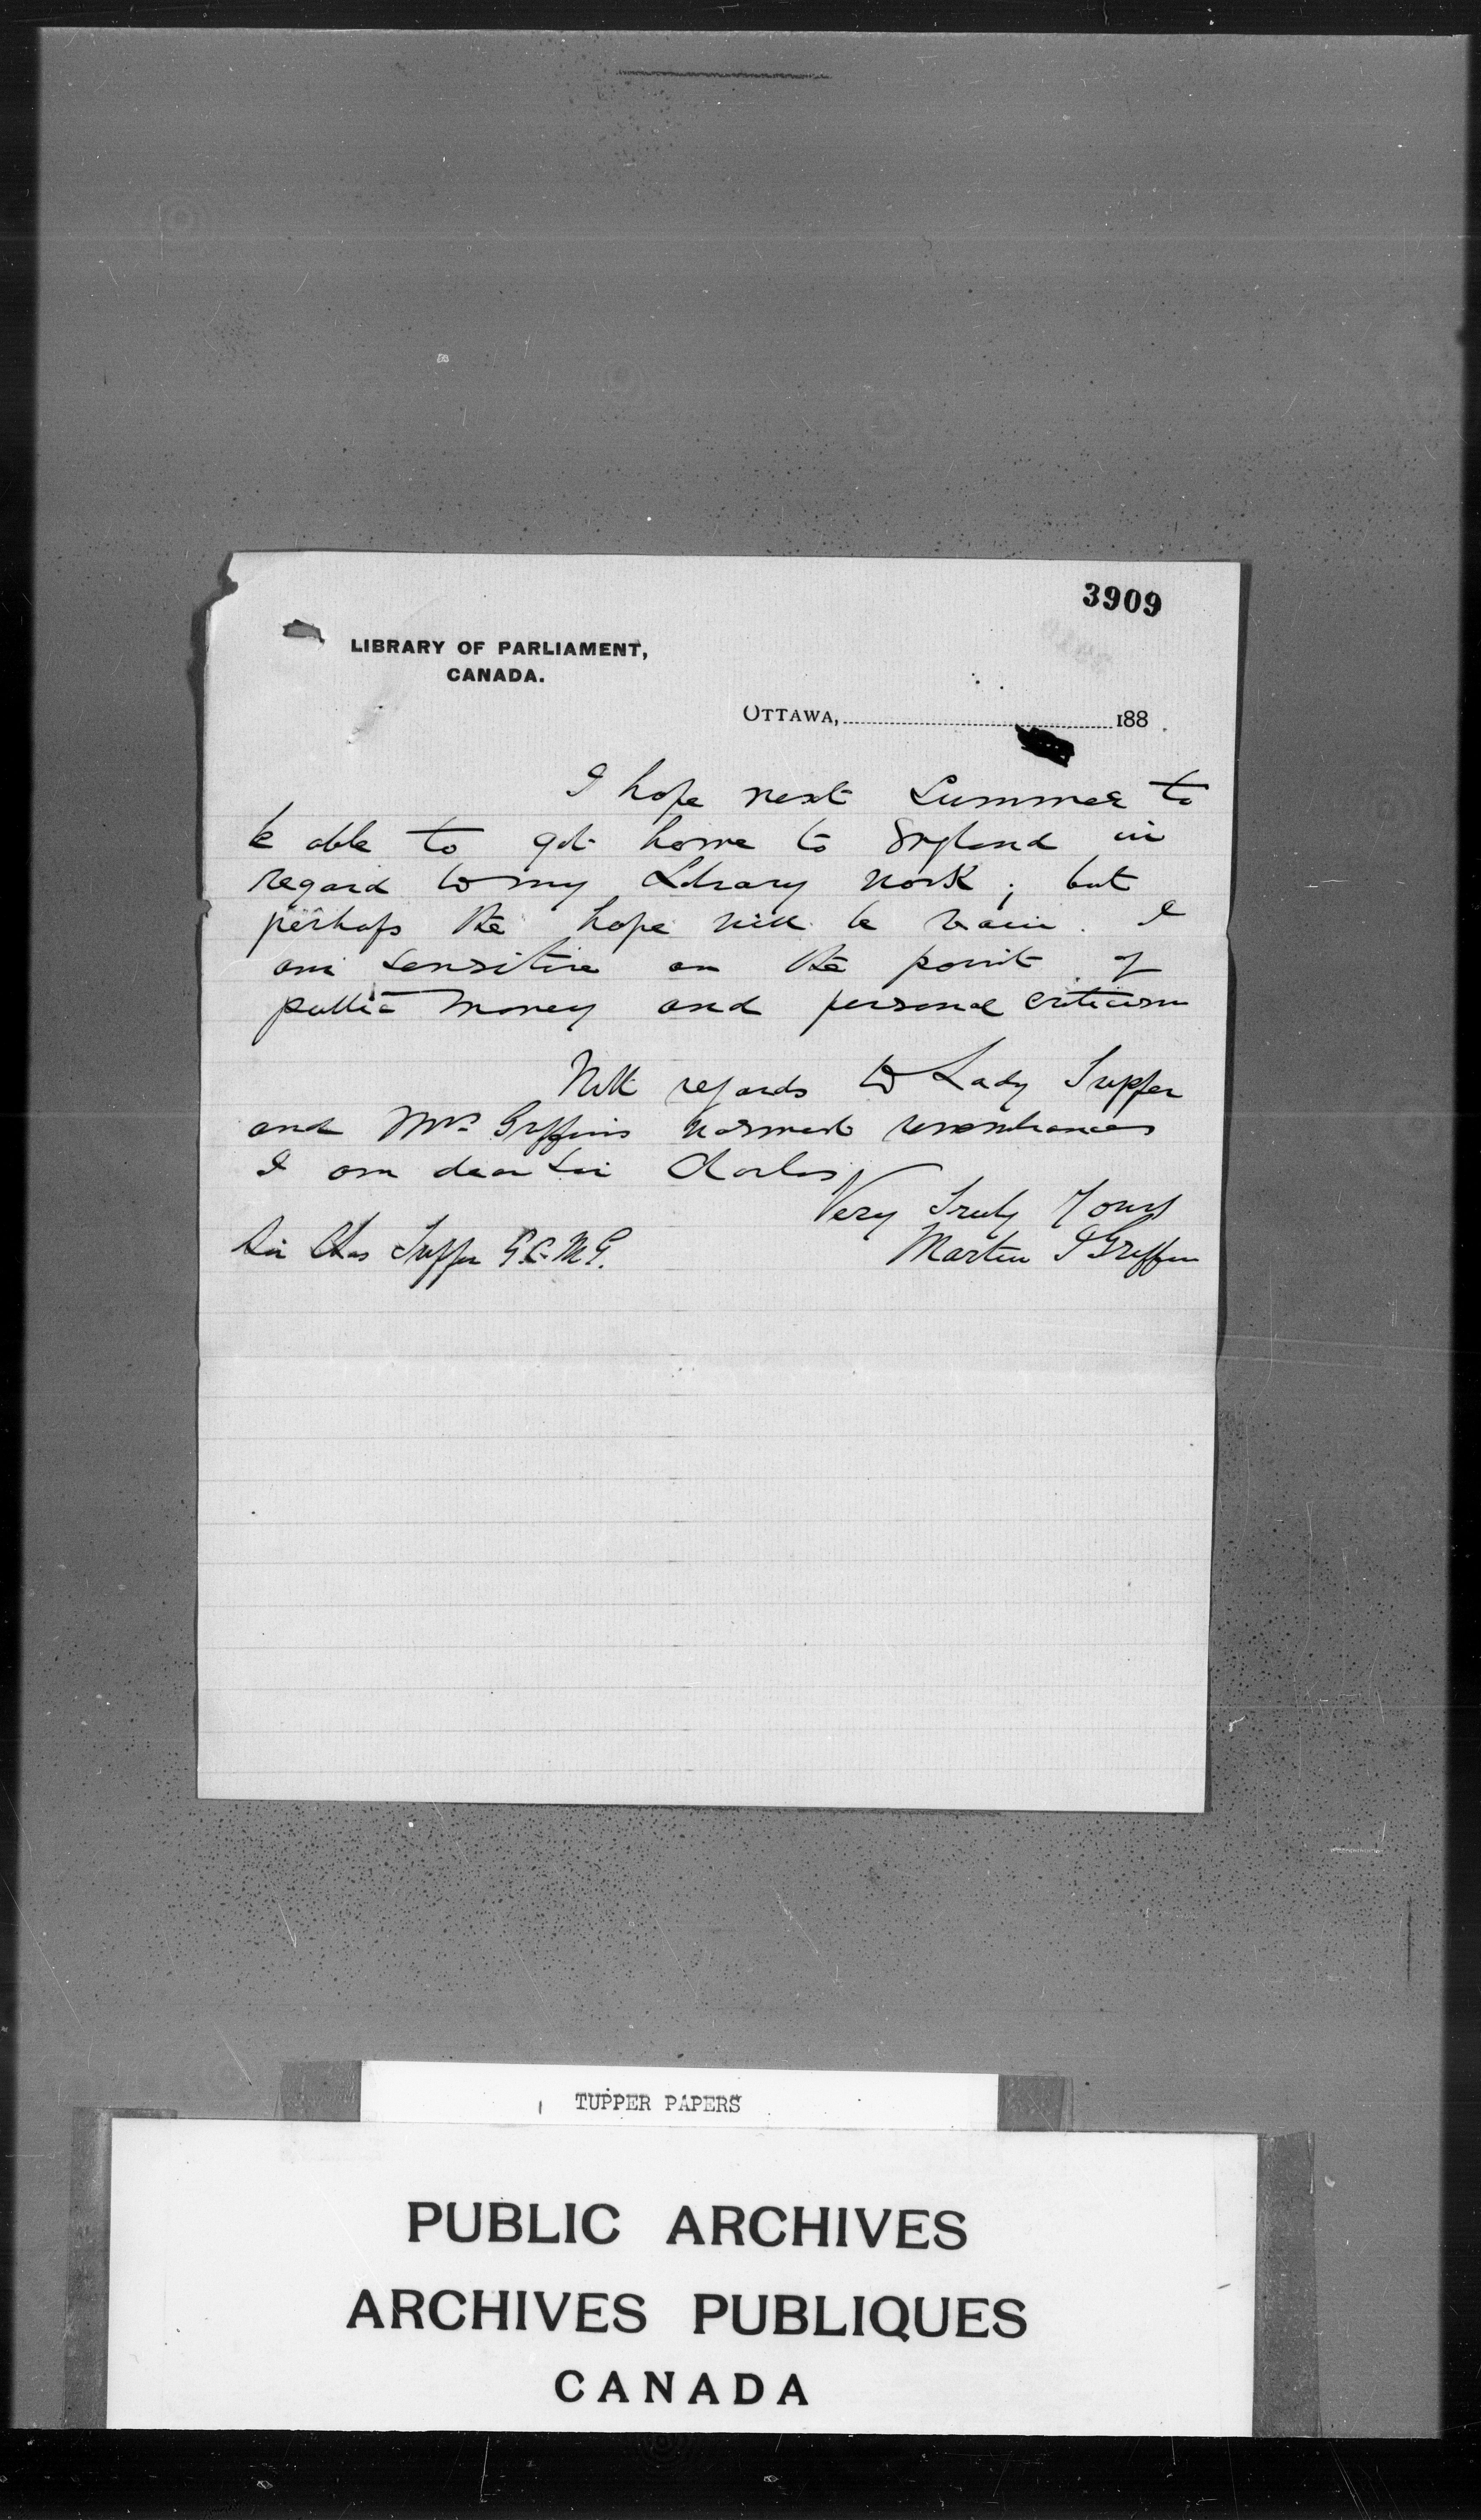 3909
LIBRARY OF PARLIAMENT,
CANADA.
OTTAWA, 188 .
I hope next Summer to
be able to get home to England in
regard to my Library work ; but
perhaps the hope will be vain. I
am sensitive on the point of
public money and personal criticism
With regards to Lady Tupper
and Mrs Griffin's warmest remembrances
I am dear Sir Charles
Very Truly Yours
Martin J Griffin
Sir Chas Tupper G.C.M.G.
TUPPER PAPERS
PUBLIC ARCHIVES
ARCHIVES PUBLIQUES
CANADA